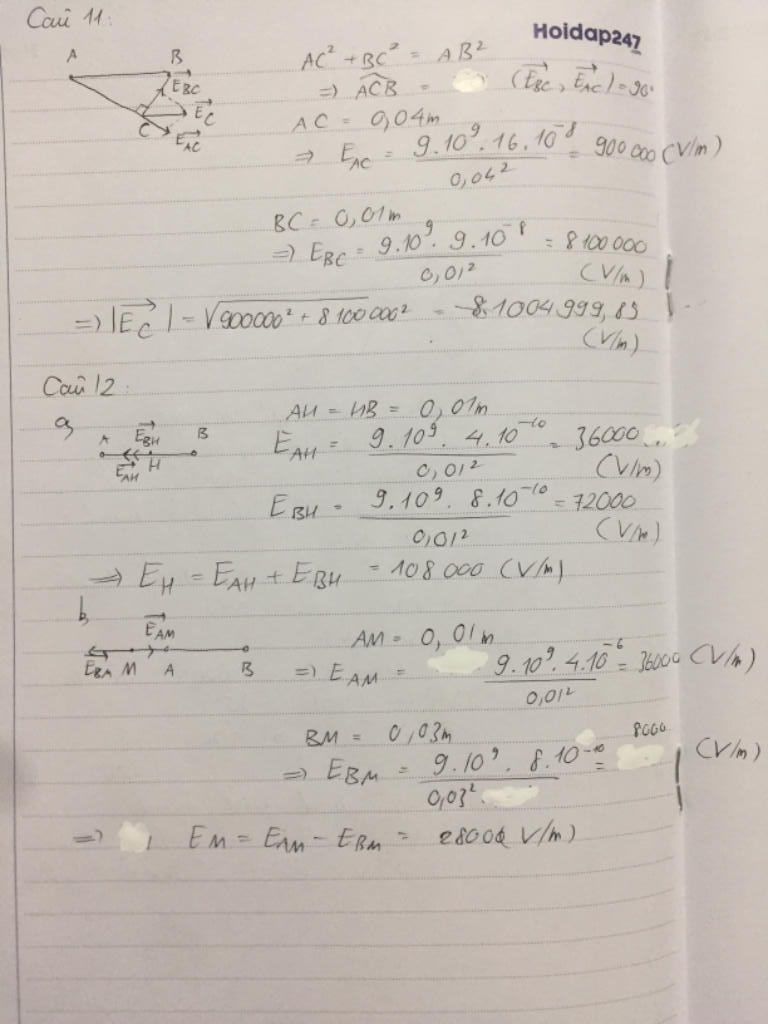 Câu 11:
Hoidap247
A B C E_BC E_C E_AC
AC² + BC² = AB²
=> ACB = (E_BC, E_AC) = 90°
AC = 0,04m
=> E_AC = 9.10⁹.16.10⁻⁸ / 0,04² = 900 000 (V/m)
BC = 0,01m
=> E_BC = 9.10⁹.9.10⁻⁸ / 0,01² = 8100000 (V/m)
=> |E_C| = √900000² + 8100000² = (V/m)
Câu 12:
a,
A E_BH B E_AH H
AH = HB = 0,01m
E_AH = 9.10⁹.4.10⁻¹⁰ / 0,01² = 36000 (V/m)
E_BH = 9.10⁹.8.10⁻¹⁰ / 0,01² = 72000 (V/m)
=> E_H = E_AH + E_BH = 108000 (V/m)
b,
E_AM E_BA M A B
AM = 0,01m
=> E_AM = 9.10⁹.4.10⁻⁶ / 0,01² = 36000 (V/m)
BM = 0,03m
=> E_BM = 9.10⁹.8.10⁻¹⁰ / 0,03² = 8000 (V/m)
=> E_M = E_AM - E_BM = 28000 V/m)